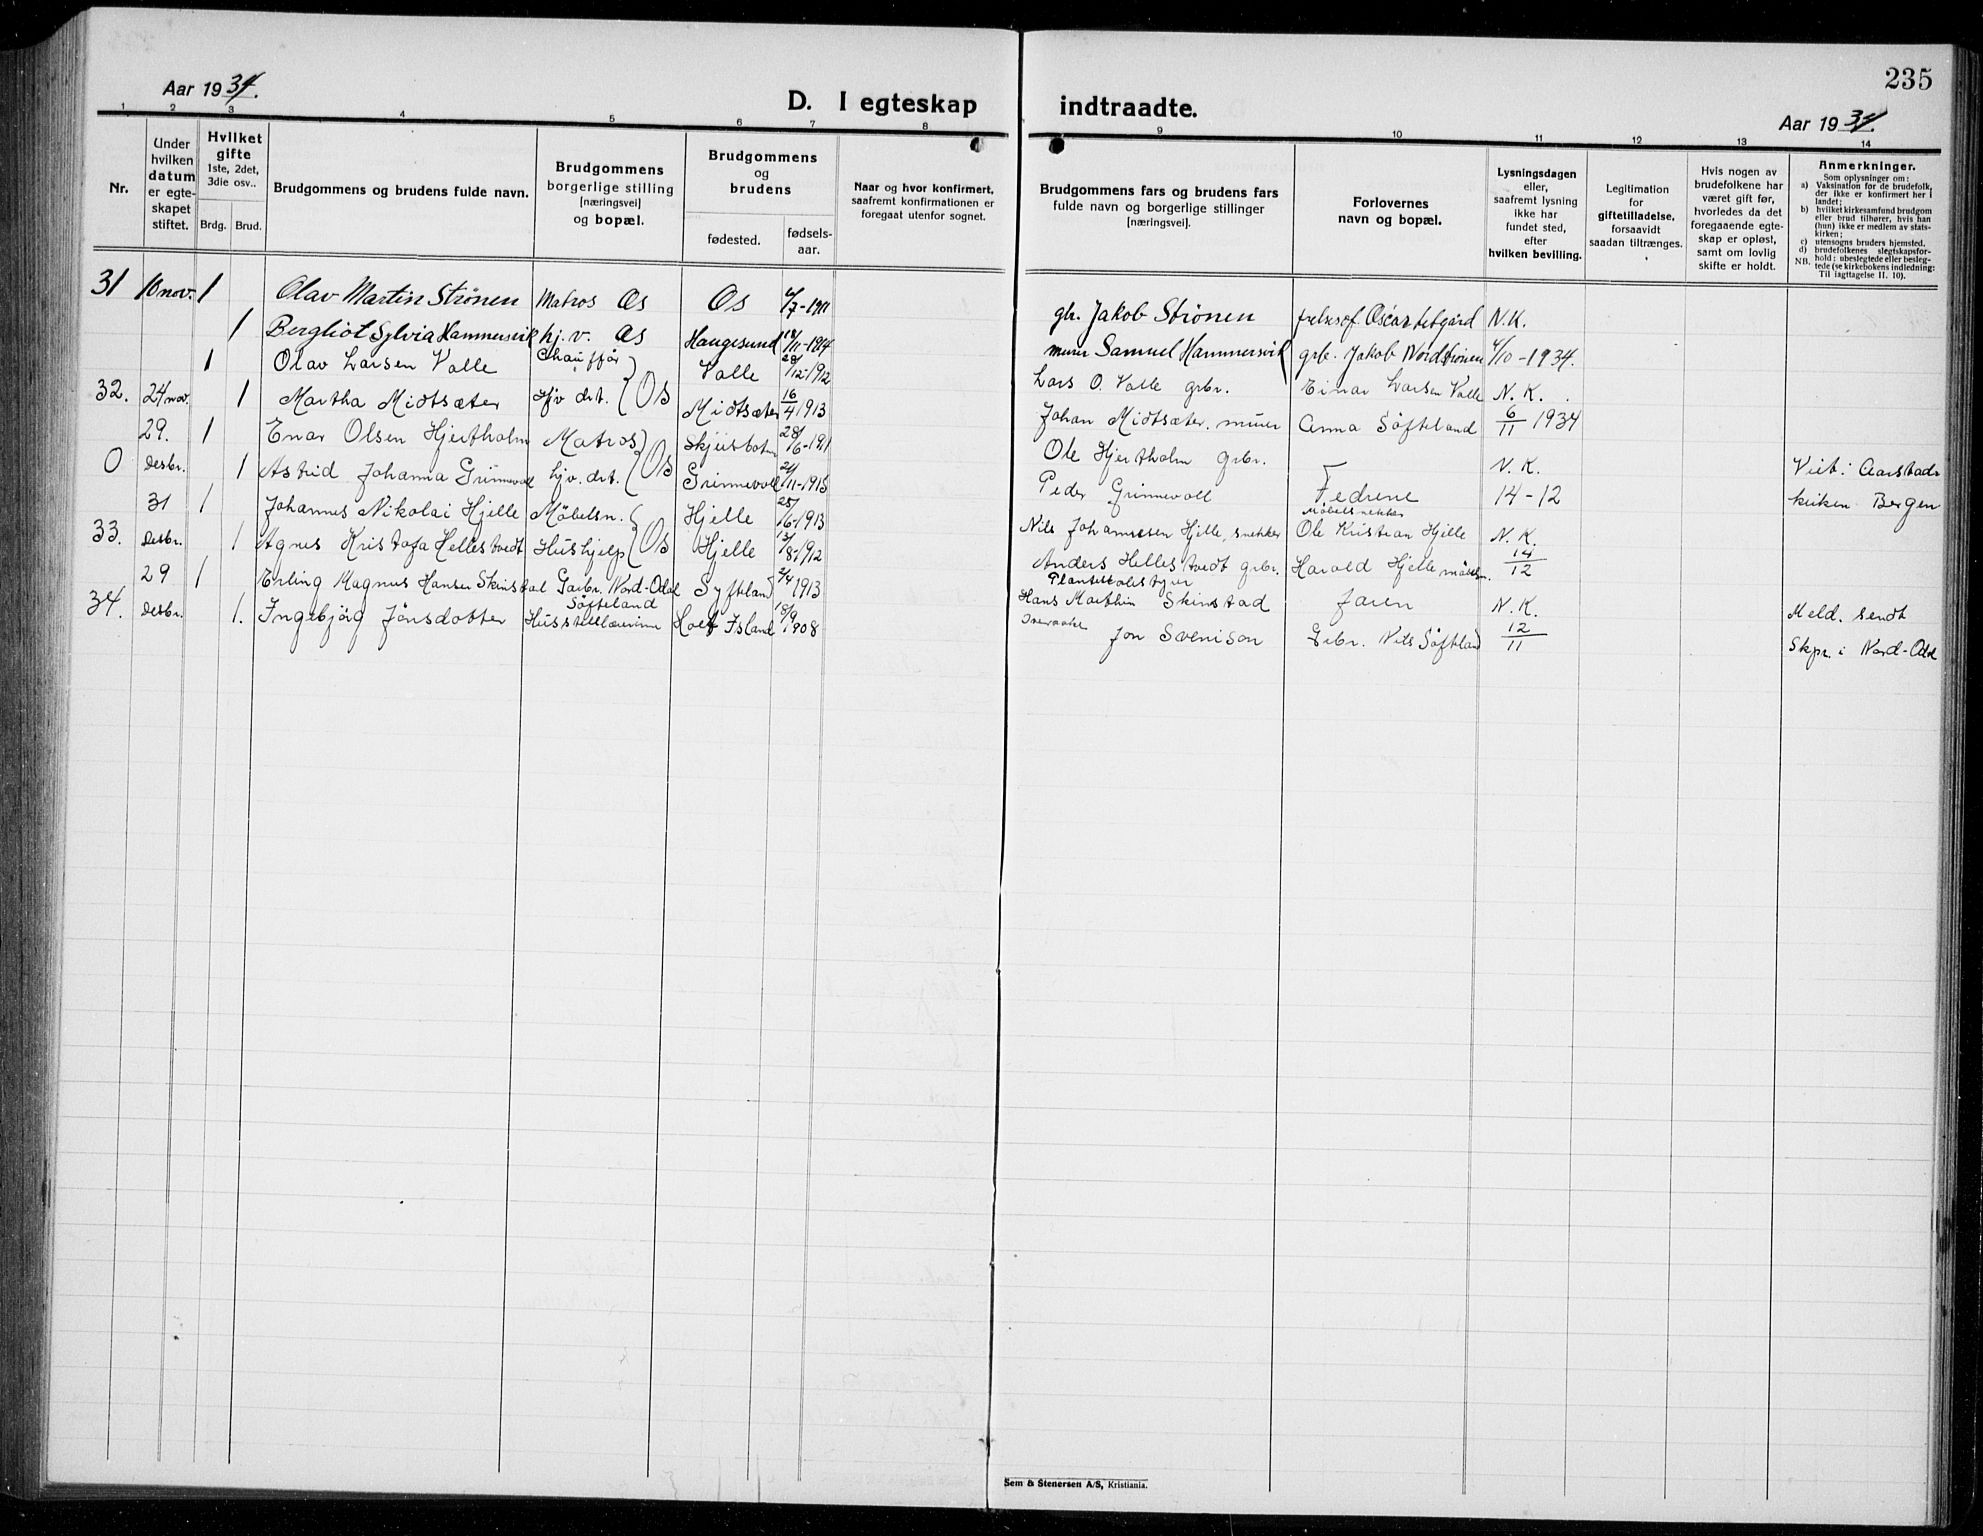 235
Aar 1934.
D. I egteskap indtraadte.
Aar 1934.
1 2 3 4 5 6 7 8 9 10 11 12 13 14
Nr.
Under hvilken datum er egteskapet stiftet.
Hvilket gifte 1ste, 2det, 3die osv..
Brdg. Brud.
Brudgommens og brudens fulde navn.
Brudgommens borgerlige stilling [næringsvei] og bopæl.
Brudgommens og brudens
fødested. fødsels-aar.
Naar og hvor konfirmert, saafremt konfirmationen er foregaat utenfor sognet.
Brudgommens fars og brudens fars fulde navn og borgerlige stillinger [næringsvei].
Forlovernes navn og bopæl.
Lysningsdagen eller, saafremt lysning ikke har fundet sted, efter hvilken bevilling.
Legitimation for giftetilladelse, forsaavidt saadan tiltrænges.
Hvis nogen av brudefolkene har været gift før, hvorledes da det foregaaende egteskap er opløst, samt om lovlig skifte er holdt.
Anmerkninger.
Som oplysninger om:
a) Vaksination for de brudefolk, der ikke er konfirmert her i landet;
b) hvilket kirkesamfund brudgom eller brud tilhører, hvis han (hun) ikke er medlem av statskirken;
c) utensogns bruders hjemsted.
d) brudefolkenes slegtskapsforhold; ubeslegtede eller beslegtede (se kirkebokens indledning:
NB. Til iagttagelse II. 10).
31 10 nov. 1 Olav Martin Strönen Matros Os Os 7-1911 gbr. Jakob Strönen Oscar N.K.
1 Bergliot Sylvia Hammersvik hj. v. Os Haugesund 11-1914 murer Samuel Hammersvik grb. Jakob Nordströnen 10-1934.
1 Olav Larsen Valle Chauffør Valle 28/12-1912 Lars O. Valle grbr. Einar Larsen Valle N. K.
32. 24 nov. 1 Martha Midtsæter Hjv drt. Os Midtsæter 16/4 1913 Johan Midtsæter. murer Anna Söfteland 6/11 1934
29. 1 Enar Olsen Hjertholm Matros 28/6-1911 Ole Hjertholm grbr. N. K.
0 Desbr. 1 Astrid Johanna Grinnevoll hjv. drt. Os Grinnevoll 11-1915 Peder Grinnevoll Fedrene 14-12 Viet i Aarstads kirken Bergen
31 1 Johannes Nikolai Hjelle Möbelsn. Hjelle 25/6-1913 Nils Johannesen Hjelle, snekker Möbelsnekker Ole Kristian Hjelle N. K.
33. Desbr. 1 Agnes Kristofa Hellestvedt Hushjelp Os Hjelle 13/8-1912 Anders Hellestvedt grbr. Harald Hjelle möbelsn. 14/12
29 1 Erling Magnus Hansen Skinstad Garbr. Nord-Odal Syfteland 2/4 1913 Hans Marthin Skinstad Jaren N. K.
34. Desbr. 1. Ingebjörg Jönsdotter Söfteland Husstellærerinne Island 18/9 1908 Jon Svenison Grbr. Nils Söfteland 12/11
Meld. sendt
Skpr. i Nord-Odal
Sem & Stenersen A/S, Kristiania.